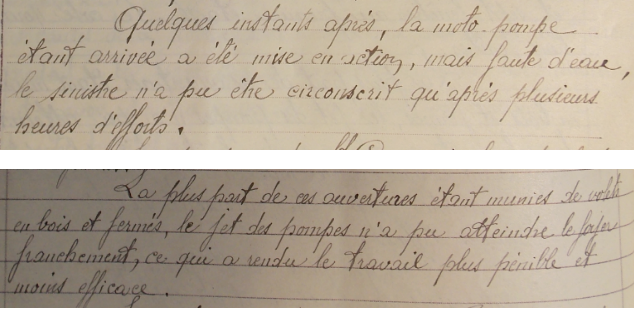 Quelques instants après, la moto pompe
étant arrivée a été mise en action, mais faute d'eau,
le sinistre n'a pu être circonscrit qu'après plusieurs
heures d'efforts.
La plus part de ces ouvertures étant munies de volets
en bois et fermés, le jet des pompes n'a pu atteindre le foyer
franchement, ce qui a rendu le travail plus pénible et
moins efficace.